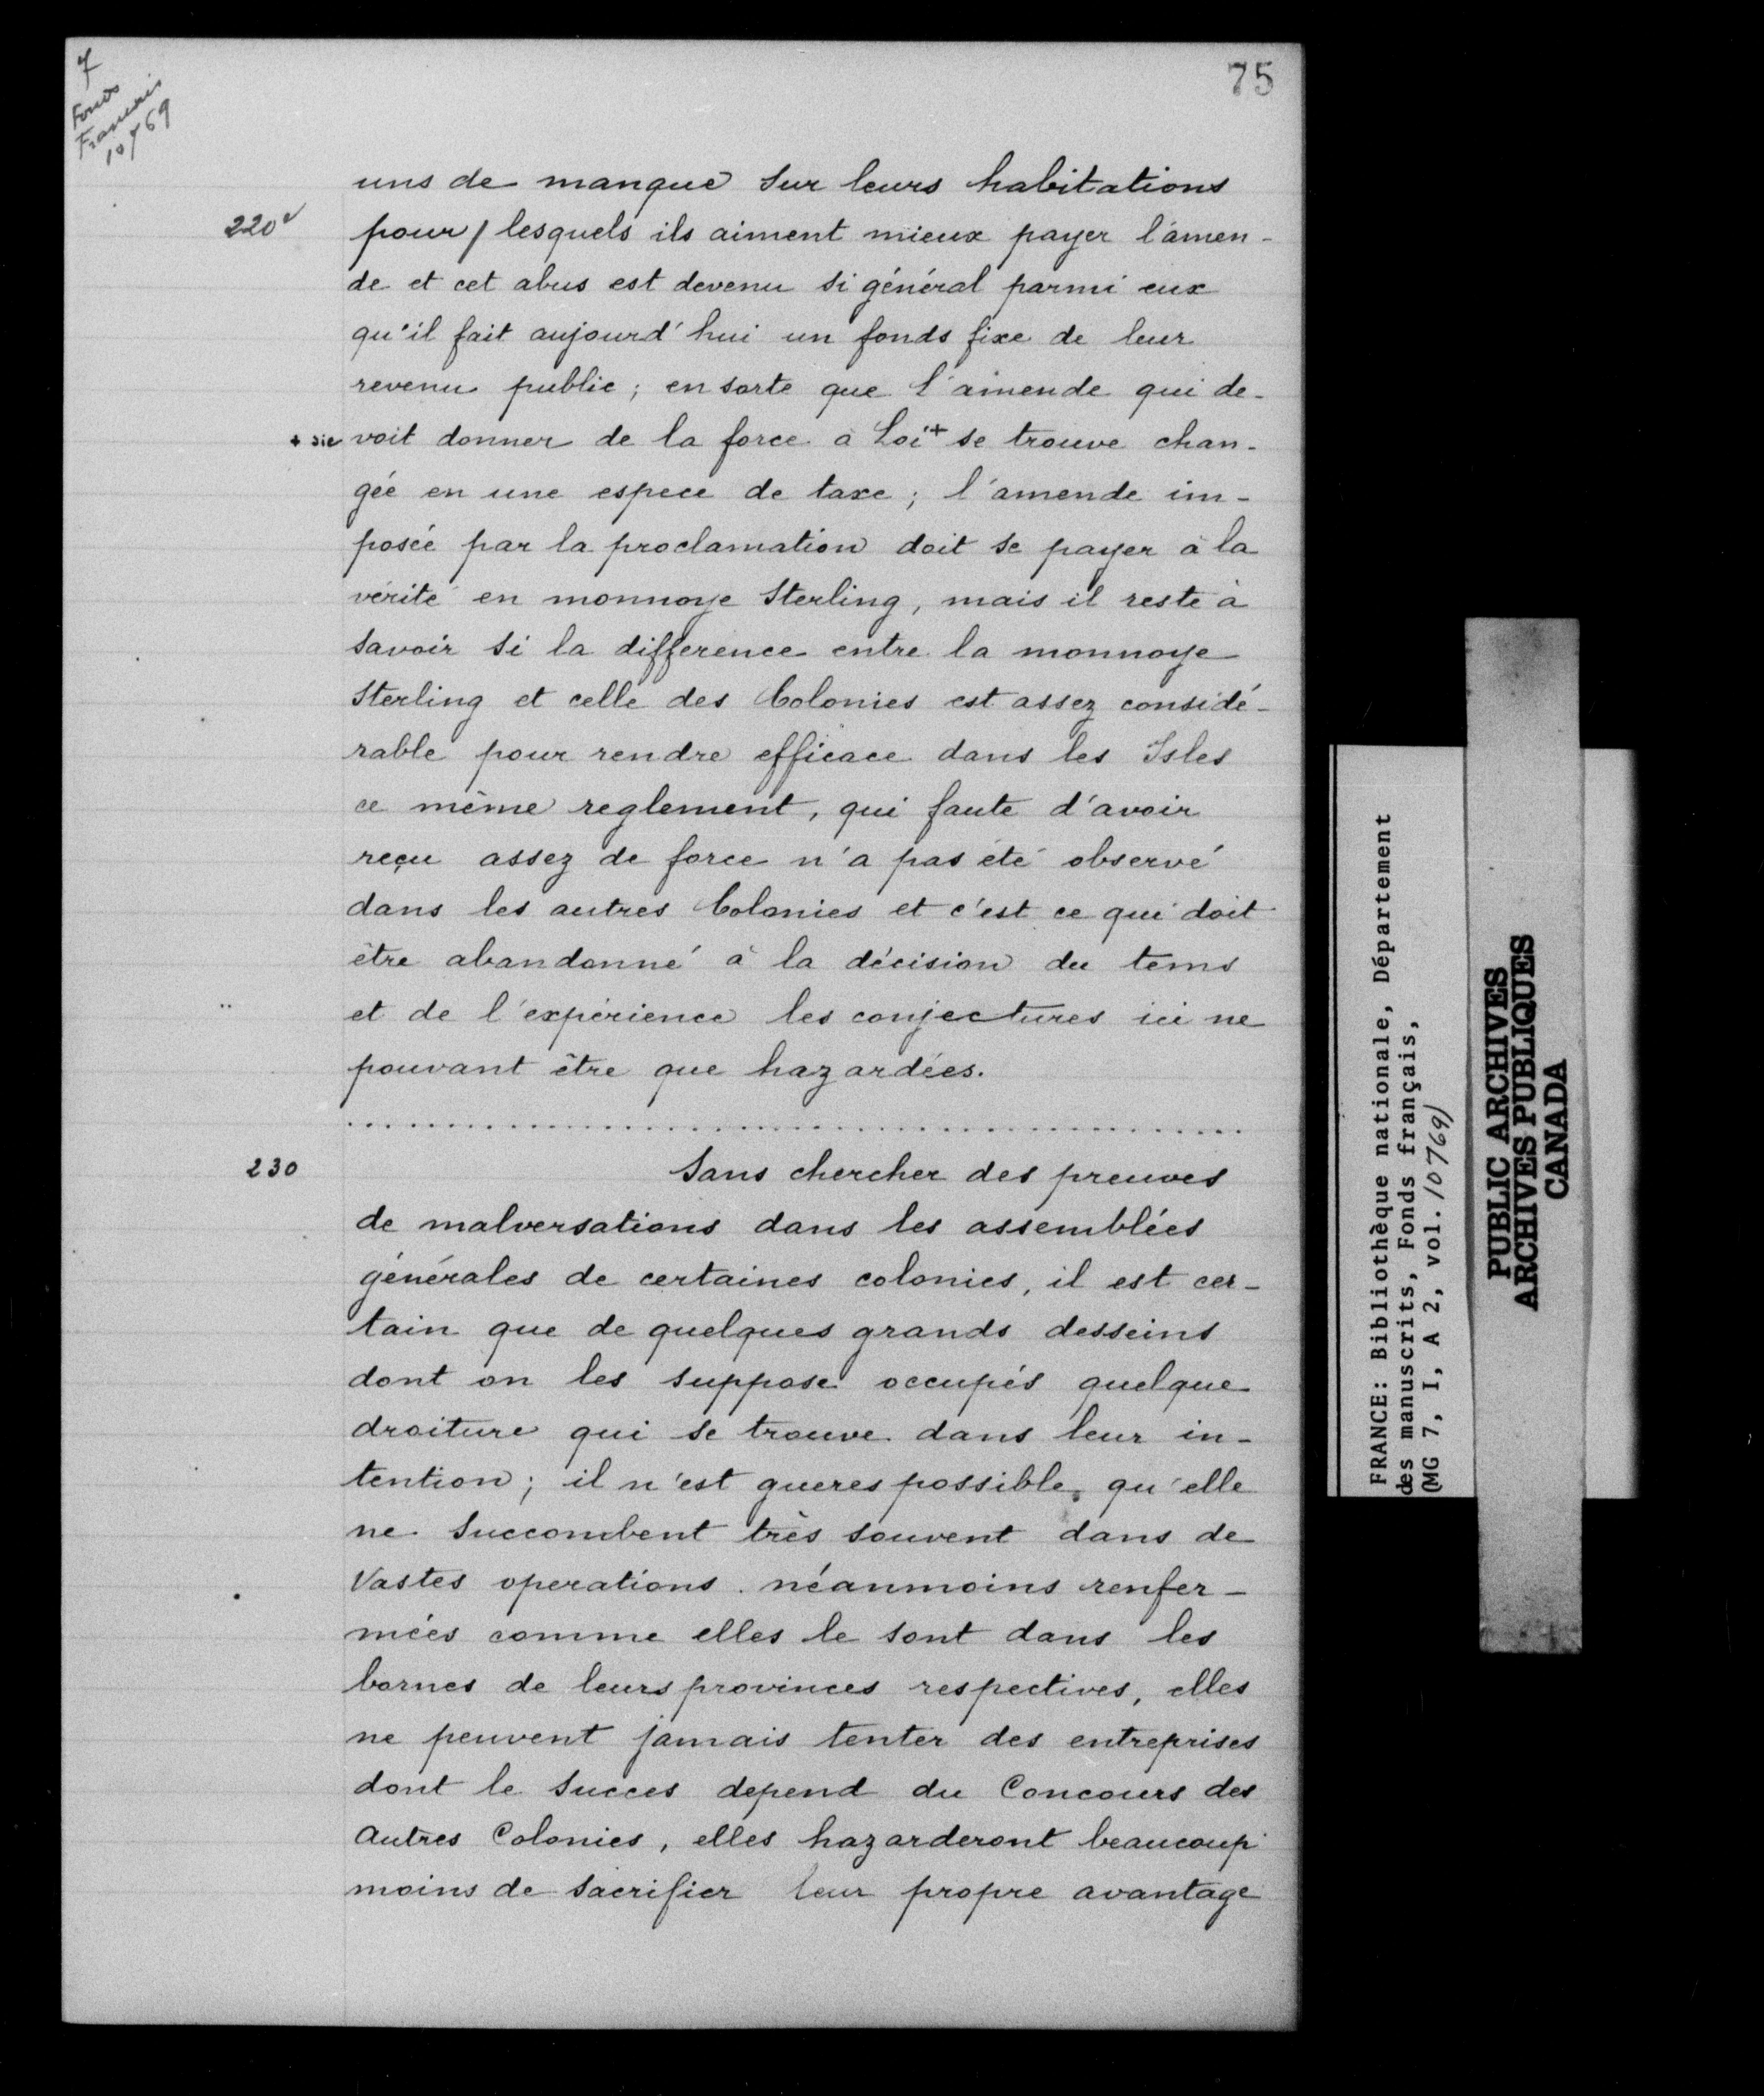 7
Fonds
Francais
10769
75
uns de manque sur leurs habitations
220v pour / lesquels ils aiment mieux payer l'amen-
de et cet abus est devenu si général parmi eux
qu'il fait aujourd'hui un fonds fixe de leur
revenu public ; en sorte que l'amende qui de-
+ sic voit donner de la force à Loi+ se trouve chan-
gée en une espece de taxe ; l'amende im-
posée par la proclamation doit se payer à la
vérité en monnoye Sterling, mais il reste à
savoir si la difference entre la monnoye
Sterling et celle des Colonies est assez considé-
rable pour rendre efficace dans les Isles
ce même reglement, qui faute d'avoir
reçu assez de force n'a pas été observé
dans les autres Colonies et c'est ce qui doit
être abandonné à la décision du tems
et de l'expérience les conjectures ici ne
pouvant être que hazardées.
. . . . . . . . . . . . . . . . . . . . . . . . . . . . . . . . . . .
230 Sans chercher des preuves
de malversations dans les assemblées
générales de certaines colonies, il est cer-
tain que de quelques grands desseins
dont on les suppose occupés quelque
droiture qui se trouve dans leur in-
tention ; il n'est gueres possible, qu'elle
ne succombent très souvent dans de
Vastes operations. néanmoins renfer-
mées comme elles le sont dans les
bornes de leurs provinces respectives, elles
ne peuvent jamais tenter des entreprises
dont le succes depend du Concours des
autres Colonies, elles hazarderont beaucoup
moins de sacrifier leur propre avantage
FRANCE: Bibliothèque nationale, Département
des manuscrits, Fonds français,
(MG 7, I, A 2, vol. 10769)
PUBLIC ARCHIVES
ARCHIVES PUBLIQUES
CANADA